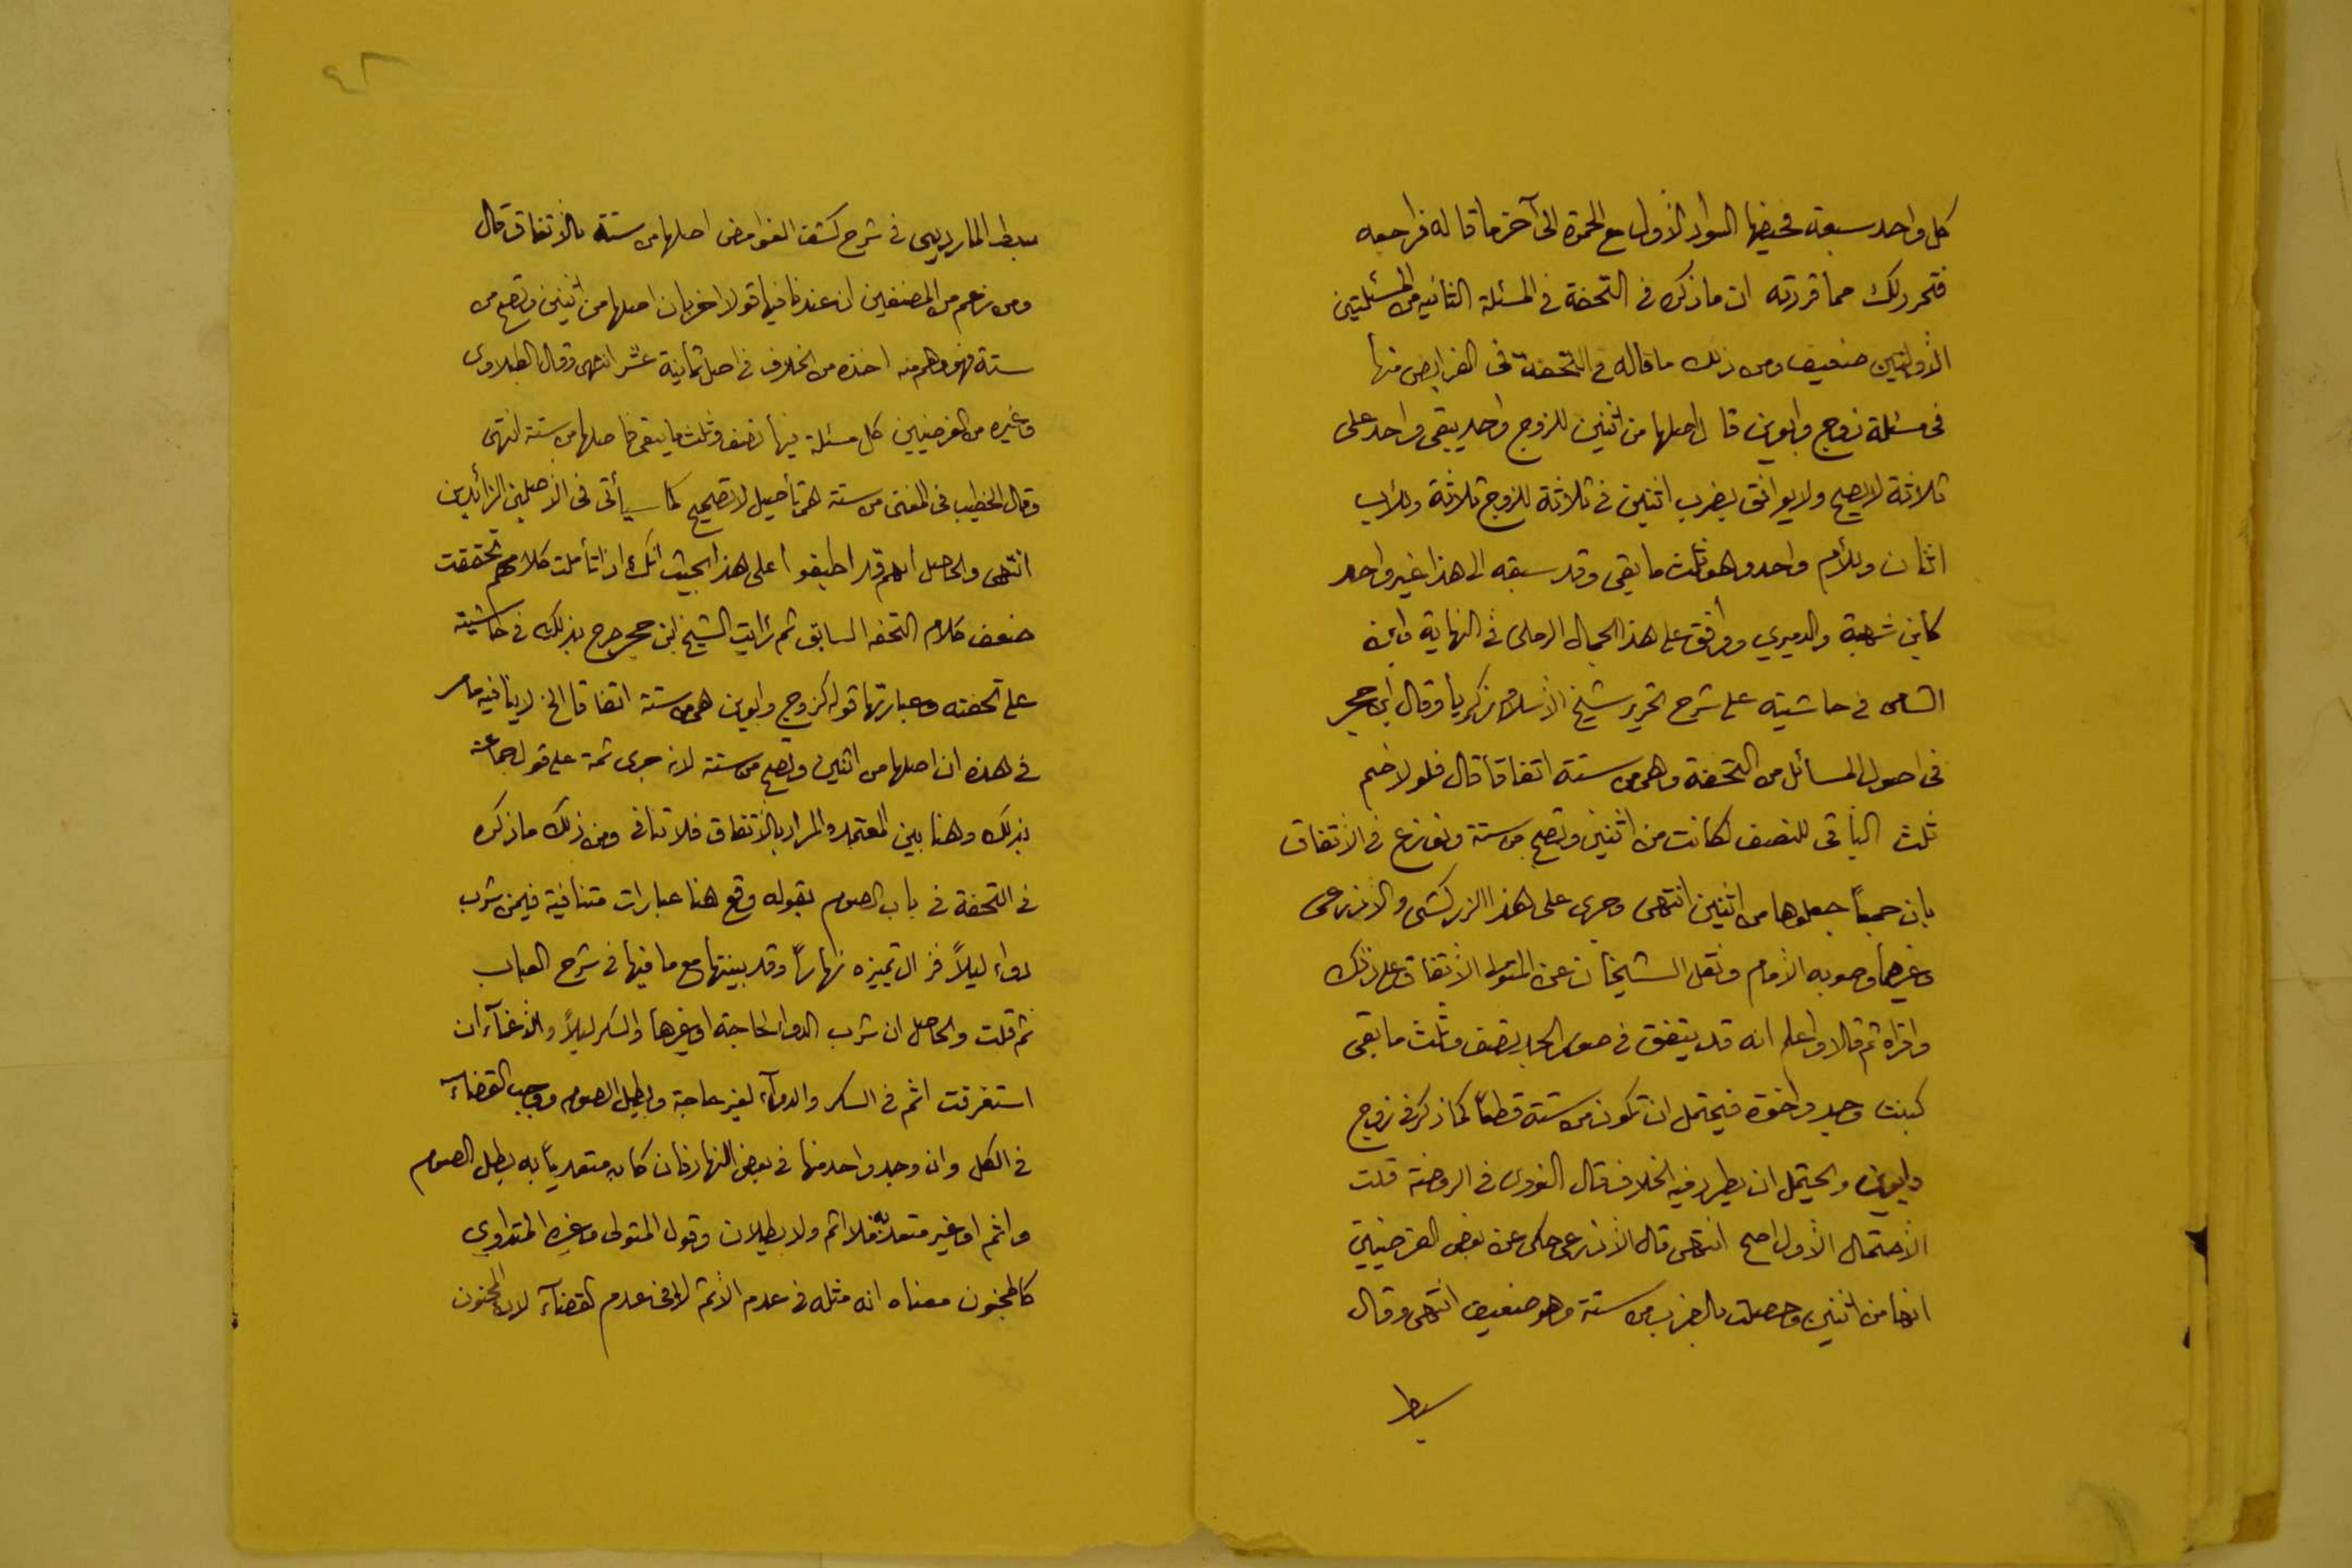 كل واحد سبعة فحيضها السواد الاول مع الحمرة الى آخر ما قاله فراجعه
فتحرر لك مما قررته ان ما ذكره في التحفة في المسئلة الثانيه من المسئلتين
الأولتين ضعيف ومن ذلك ما قاله في التحفة في الفرايض منها
في مسئلة زوج وابوين قال اصلها من اثنين للزوج واحد يبقى واحد على
ثلاثة لا يصح ولا يوافق يضرب اثنين في ثلاثة للزوج ثلاثة وللأب
اثنان وللأم واحد وهو ثلث ما بقي وقد سبقه الى هذا غير واحد
كابن شهبة والدميري ووافق على هذا الجمال الرملي في النهاية وابن
الشامي في حاشيته على شرح التحرير شيخ الأسلام زكريا وقال ابن حجر
في اصول المسائل من التحفة وهي من ستة اتفاقا قال فلولا ضم
ثلث الباقي للنصف لكانت من اثنين وتصح من ستة ونوزع في الأتفاق
بان جمعاً جعلوها من اثنين انتهى وجرى على هذا الزركشي والأذرعي
وغيرهما وصوبه الأمام ونقل الشيخان عن المتولي الأتفاق على ذلك
واقراه ثم قالا واعلم انه قد يتفق في صور الجد نصف وثلث ما بقي
كبنت وجد واخوة فيحتمل ان تكون من ستة قطعاً كما ذكر في زوج
وابوين والحيتمل ان يطرد فيه الخلاف قال النووي في الروضة قلت
الأحتمال الأول اصح انتهى قال الأذرعي حكى عن بعض الفرضيين
انها من اثنين وحصلت بالضرب من ستة وهو ضعيف انتهى وقال
سبط
٤٢
سبط المارديني في شرح كشف الغوامض اصلها من ستة بالأتفاق قال
ومن زعم من المصنفين ان عندنا فيها قولا اخر بان اصلها من اثنين وتصح من
ستة فهو وهم منه اخذه من الخلاف في اصل ثمانية عشر انتهى وقال الطبلاوي
وغيره من الفرضيين كل مسئلة فيها نصف وثلث ما يبقى فاصلها من ستة انتهى
وقال الخطيب في المغني من ستة هي تأصيل لا تصحيح كما سيأتي في الأصلين الزائدين
انتهى والحاصل انهم قد اطبقوا على هذا بحيث انك اذا تأملت كلامهم تحققت
ضعف كلام التحفه السابق ثم رأيت الشيخ ابن حجر صرح بذلك في حاشيته
على تحفته وعبارتها قوله كزوج وابوين هي من ستة اتفاقا الخ لا ينافيه ما مر
في هذه ان اصلها من اثنين وتصح من ستة لانه جرى ثمة على قول جماعة
بذلك وهنا بين المعتمد والمراد بالأتفاق فلا تنافي ومن ذلك ما ذكره
في التحفة في باب الصوم بقوله وقع هنا عبارات متنافية فيمن شرب
دواء ليلاً فزال تميزه نهاراً وقد بينتها مع ما فيها في شرح العباب
ثم قلت والحاصل ان شرب الدواء لحاجة او غيرها والسكر ليلاً والأغمآء ان
استغرقت اثم في السكر والدوآء لغير حاجة وبطل الصوم ووجب القضآء
في الكل وان وجد واحد منها في بعض النهار فان كان متعدياً به بطل الصوم
واثم او غير متعد به فلا اثم ولا بطلان وقول المتولي وغيره المتداوي
كالمجنون معناه انه مثله في عدم الأثم لا في عدم القضآء لان المجنون